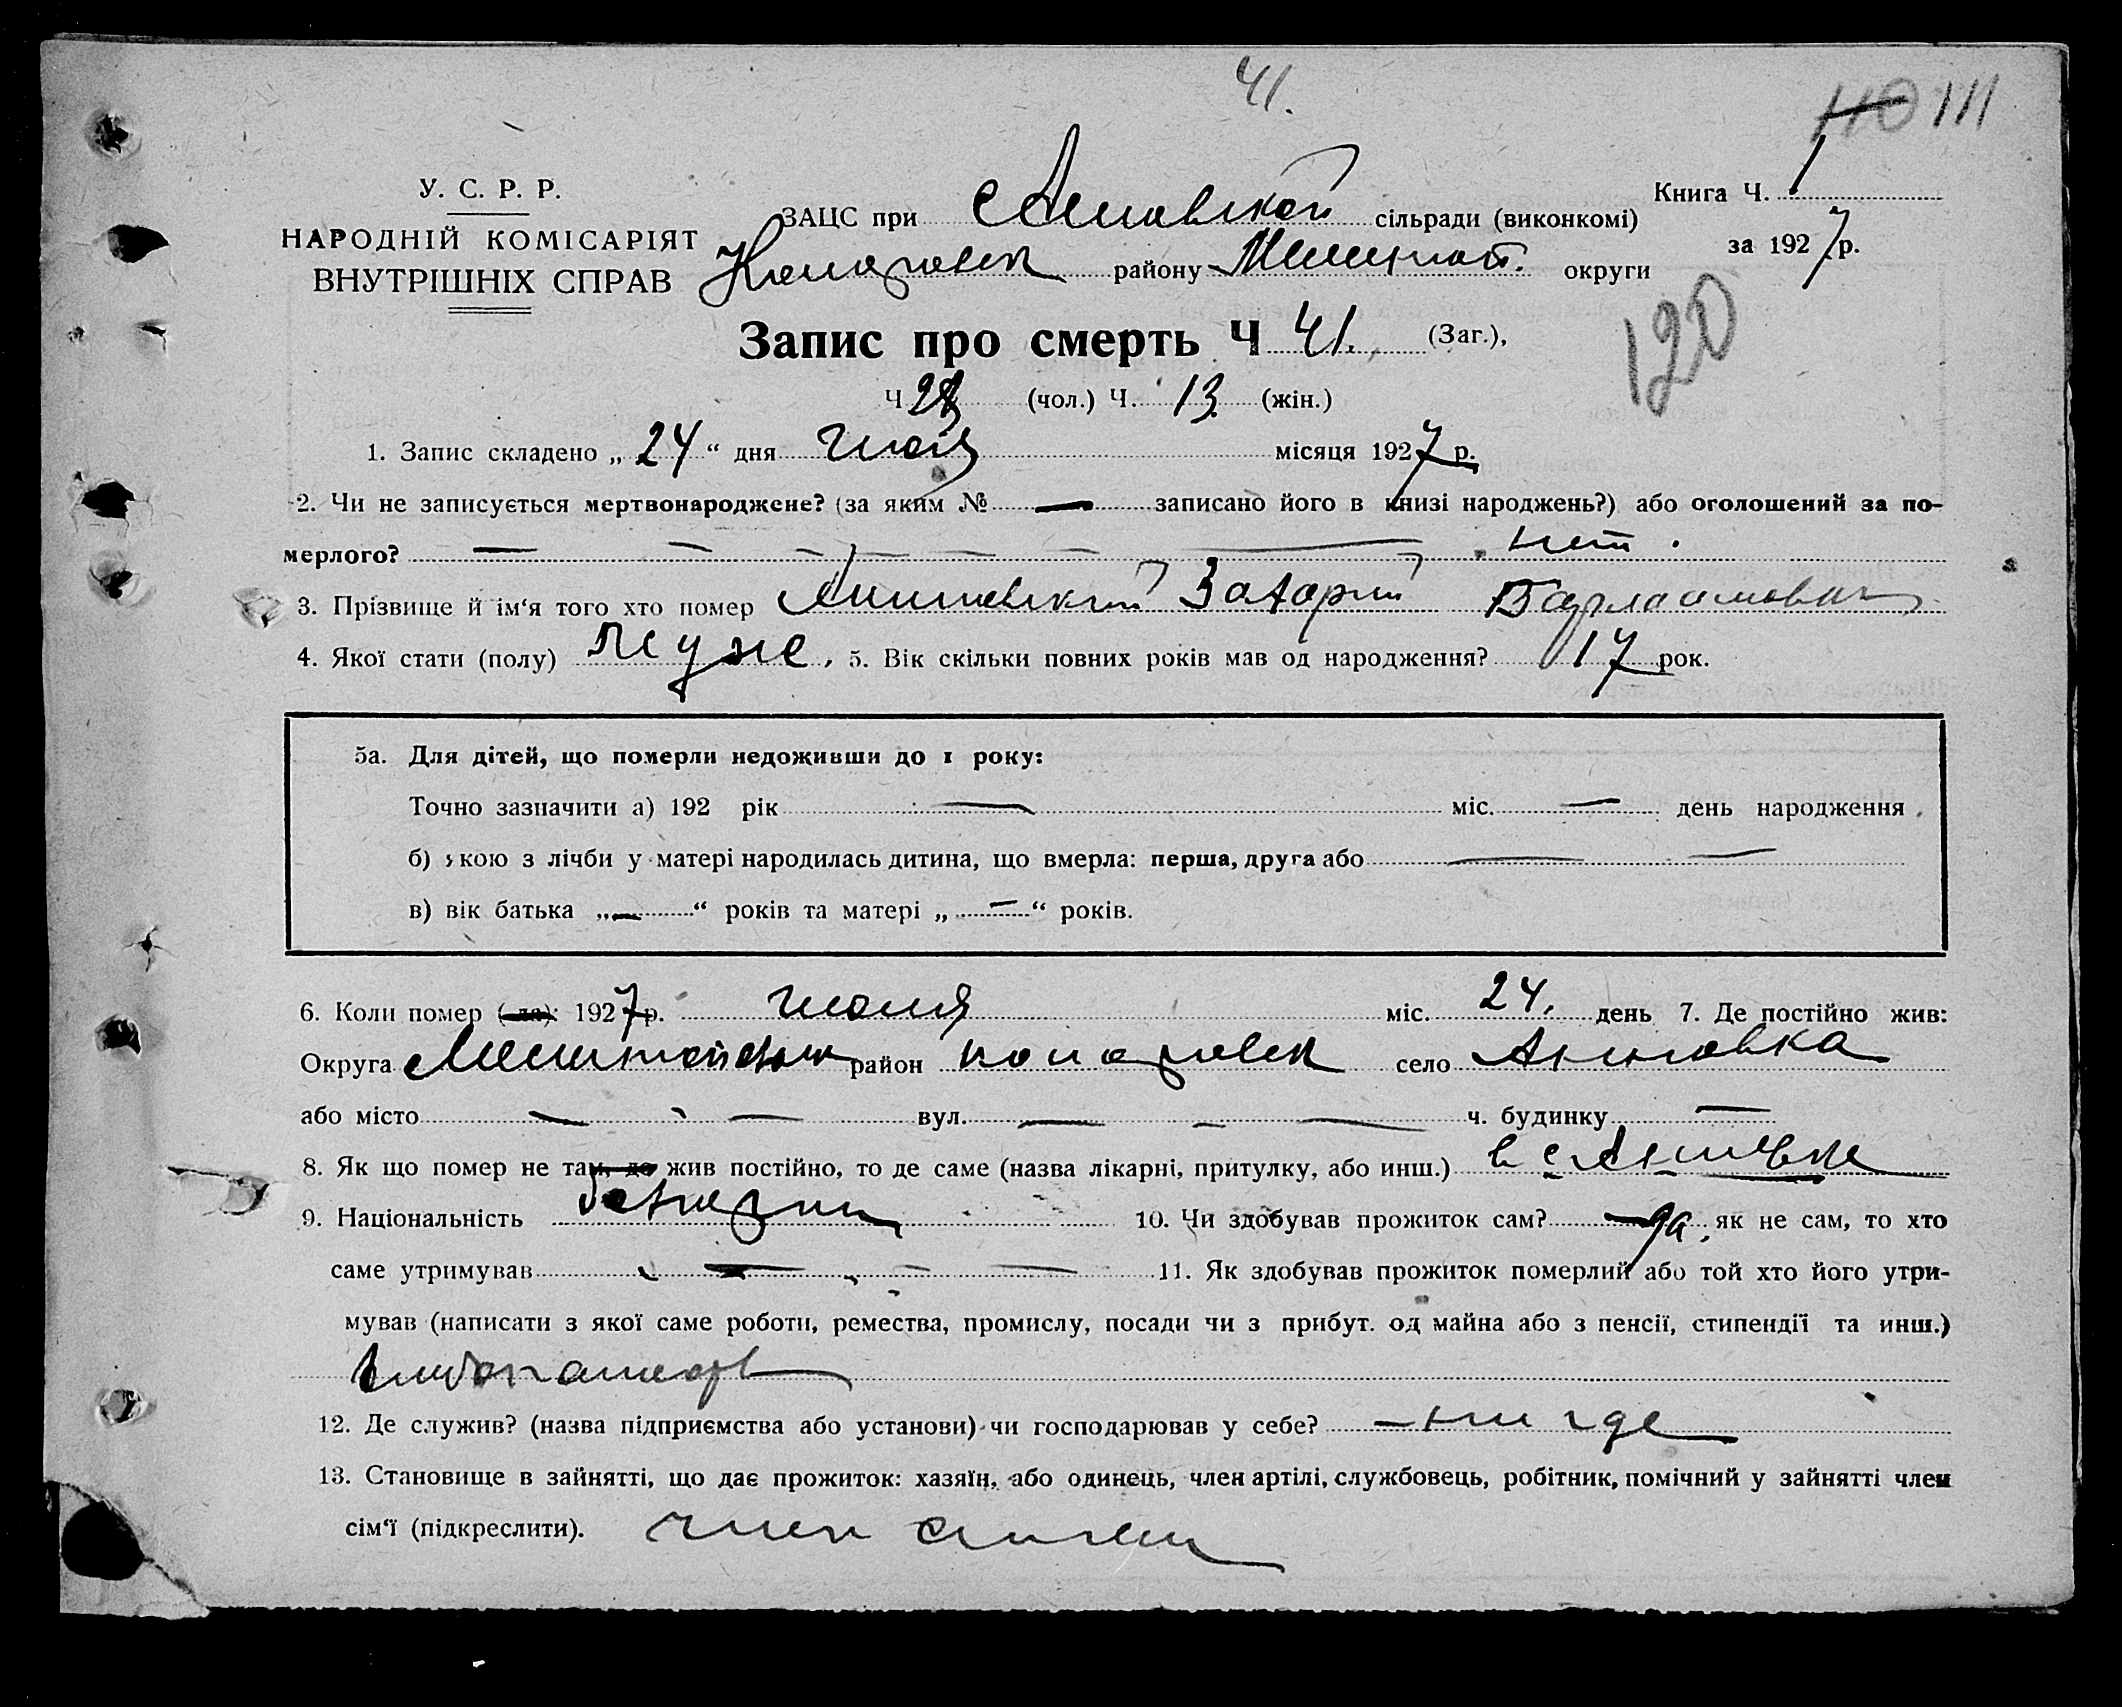 41.
110 111
У. С. Р. Р.
НАРОДНІЙ КОМІСАРІЯТ
ВНУТРІШНІХ СПРАВ
ЗАЦС при сільради (виконкомі)
Книга Ч. 1
району округи
за 1927 р.
120
Запис про смерть Ч 41. (Заг.),
Ч 28 (чол.) Ч. 13 (жін.)
1. Запис складено „ 24 “ дня июля місяця 1927 р.
2. Чи не записується мертвонароджене? (за яким № — записано його в книзі народжень?) або оголошений за по-
мерлого? — — — — — — — нет.
3. Прізвище й ім‘я того хто помер Захарий Варлаамович
4. Якої стати (полу) муже, 5. Вік скільки повних років мав од народження? 17 рок.
5а. Для дітей, що померли недоживши до 1 року:
Точно зазначити а) 192 рік — міс. — день народження
б) якою з лічби у матері народилась дитина, що вмерла: перша, друга або — —
в) вік батька „ — “ років та матері „ — “ років.
6. Коли помер (-ла): 1927 р. июля міс. 24. день 7. Де постійно жив:
Округа район село Анновка
або місто — — вул. — — — ч. будинку —
8. Як що помер не там, де жив постійно, то де саме (назва лікарні, притулку, або инш.) в с.
9. Національність 10. Чи здобував прожиток сам? да, як не сам, то хто
саме утримував — — — 11. Як здобував прожиток померлий або той хто його утри-
мував (написати з якої саме роботи, ремества, промислу, посади чи з прибут. од майна або з пенсії, стипендії та инш.)
хлебопашеср
12. Де служив? (назва підприємства або установи) чи господарював у себе? — ни где
13. Становище в зайнятті, що дає прожиток: хазяїн, або одинець, член артілі, службовець, робітник, помічний у зайнятті член
сім‘ї (підкреслити). член семьи